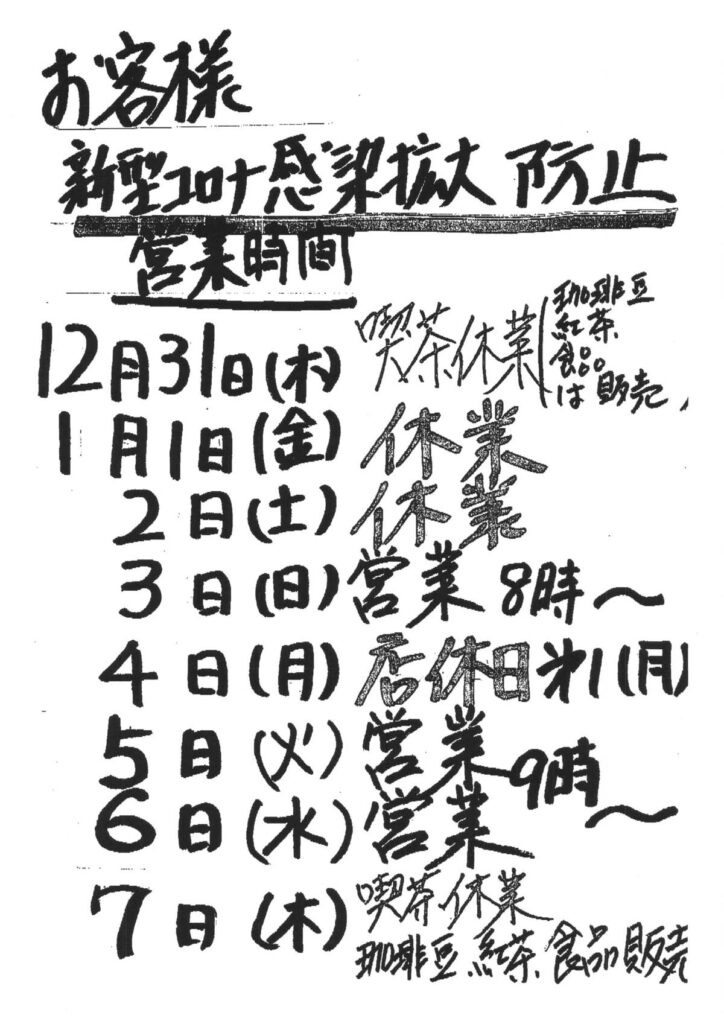 お客様
新型コロナ感染拡大防止
営業時間
12月31日(木) 喫茶休業(珈琲豆
紅茶
食品
は販売
1月1日(金) 休業
2日(土) 休業
3日(日) 営業 8時〜
4日(月) 店休日 第1(月)
5日(火) 営業
9時〜
6日(水) 営業
7日(木) 喫茶休業
珈琲豆 紅茶 食品販売